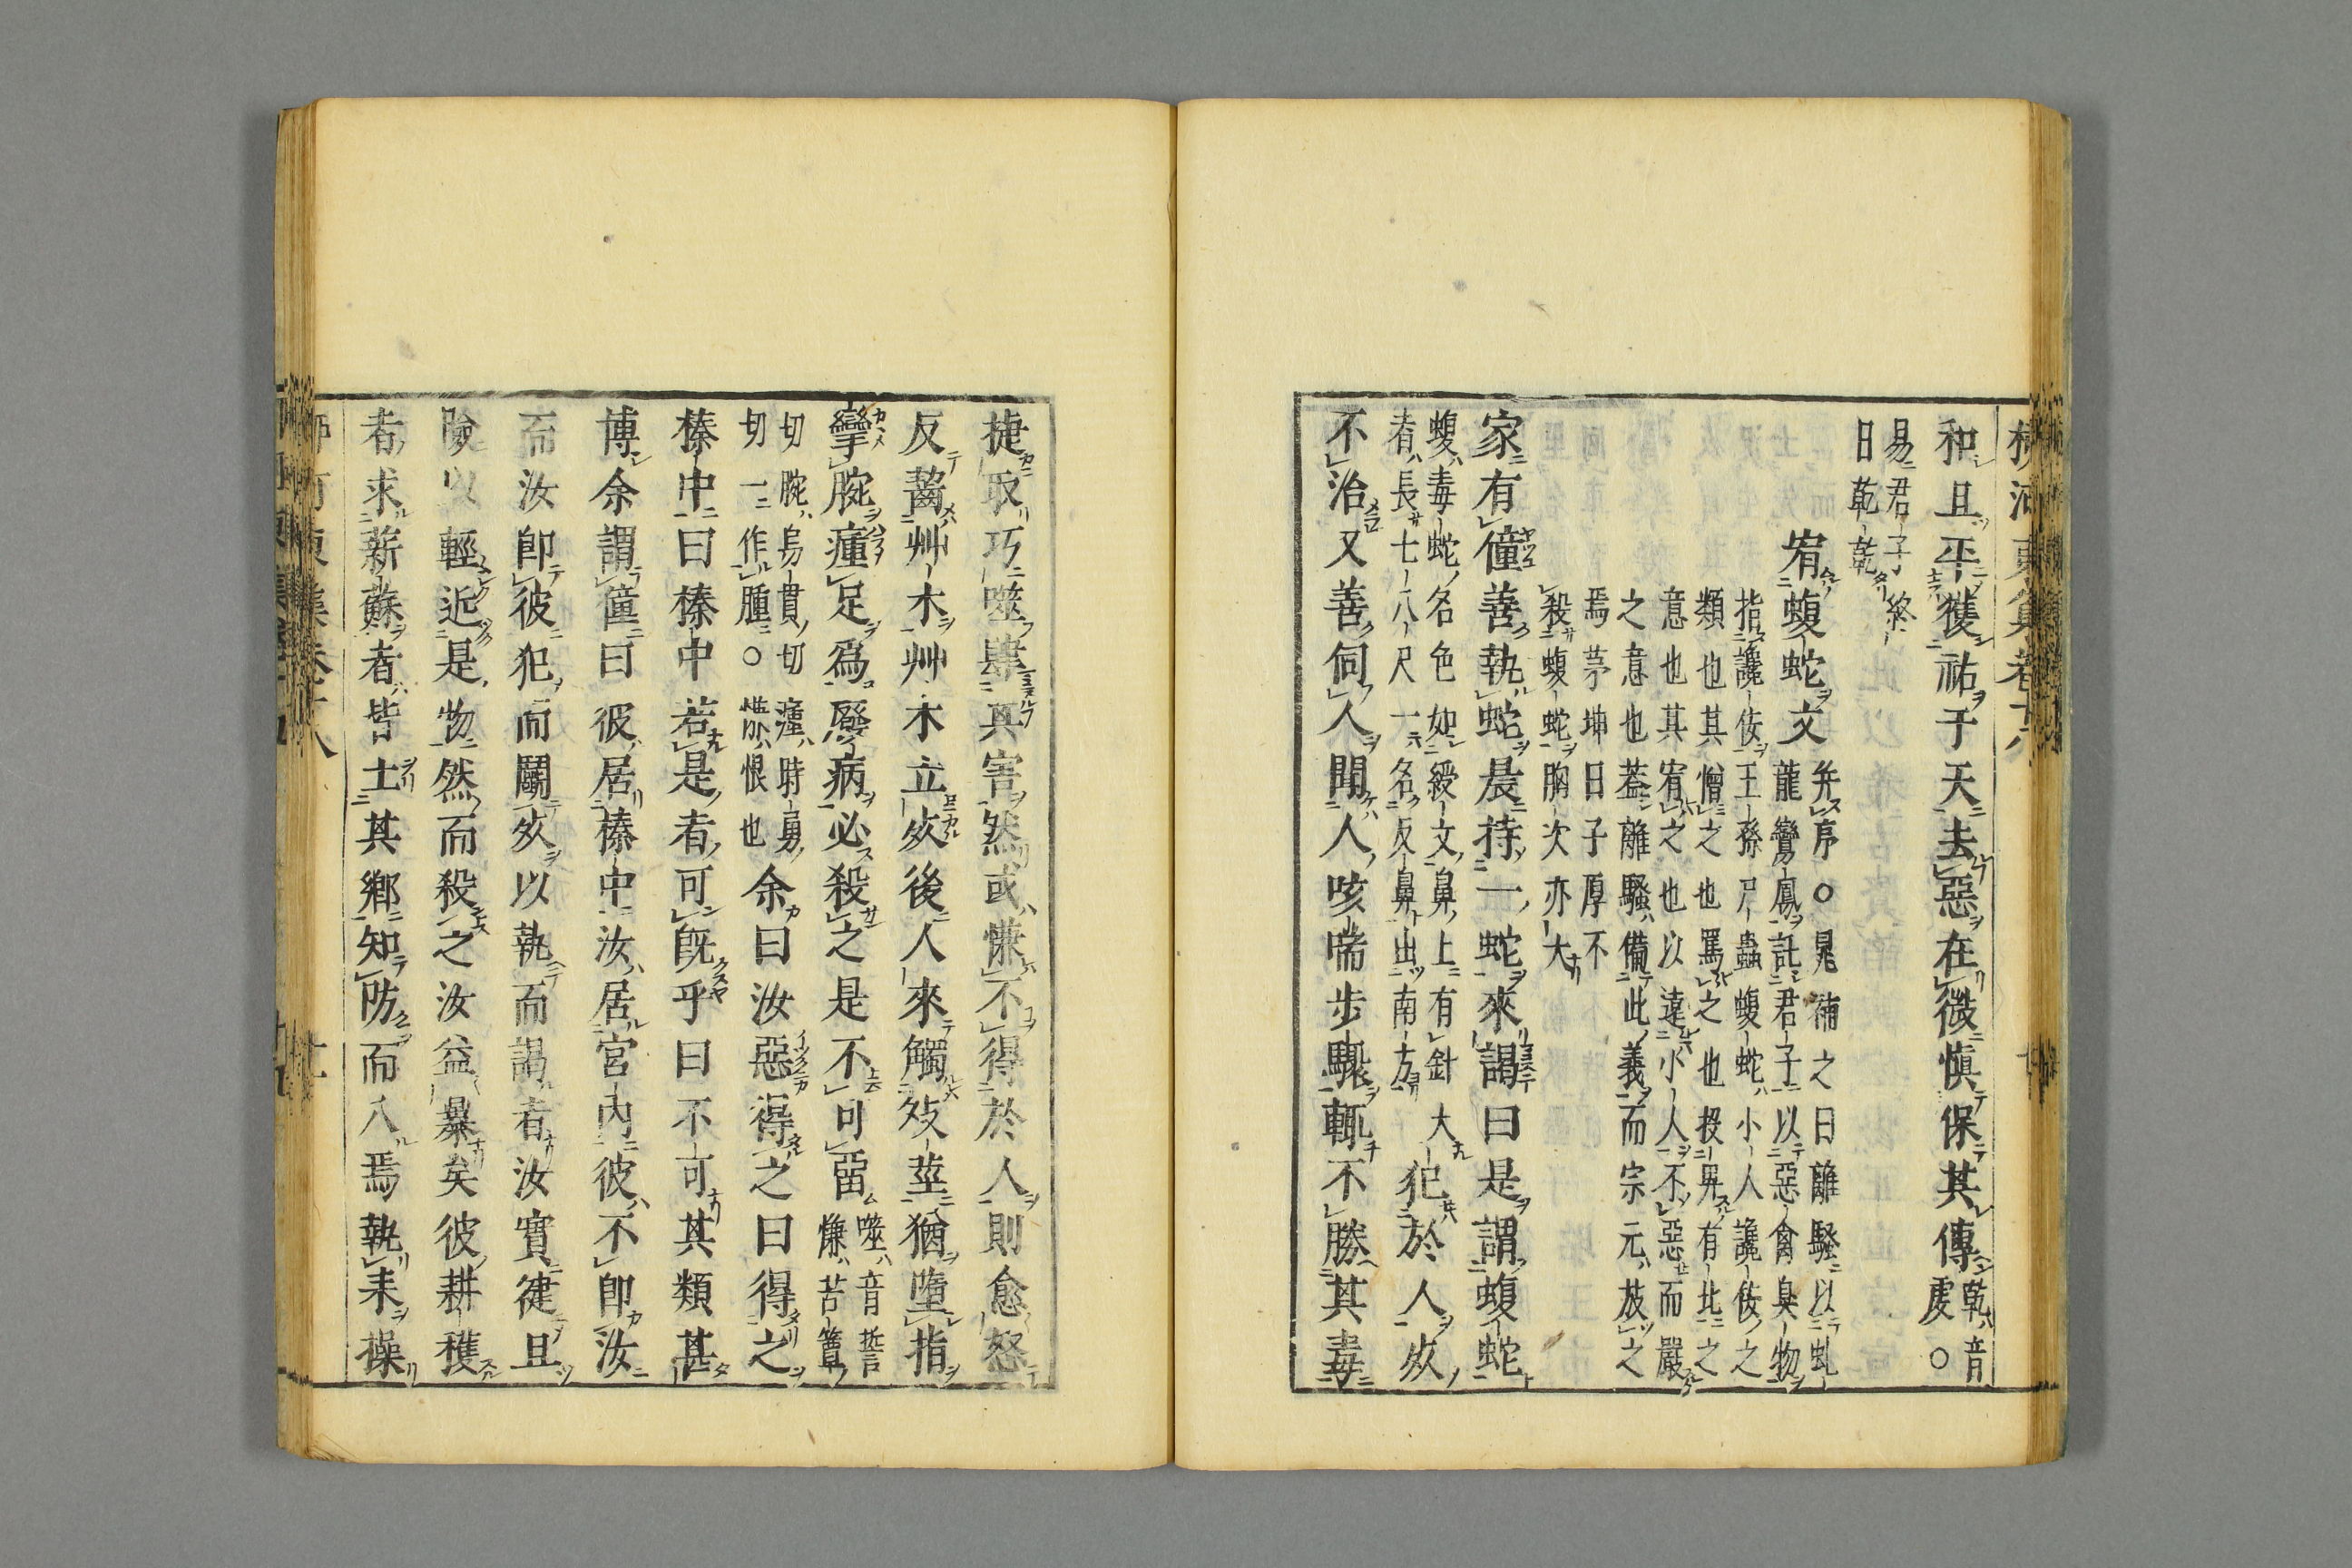 柳河東集卷十八
和且平獲祐于天去惡在微愼保其傳乾音虔○
易君子終
日乾乾
宥蝮蛇文幷序○晁補之曰離騷以虬
龍鸞鳳託君子以惡禽臭物
指讒佞王孫尸蟲蝮蛇小人讒佞之
類也其憎之也罵之也投畀有北之
意也其宥之也以遠小人不惡而嚴
之意也蓋離騷備此義而宗元放之
焉茅坤曰子厚不
殺蝮蛇胸次亦大
家有僮善執蛇晨持一蛇來謁曰是謂蝮蛇
蝮毒蛇名色如綬文鼻上有針大
者長七八尺一名反鼻出南方
犯於人死
不治又善伺人聞人咳喘步驟輒不勝其毒
捷取巧噬肆其害然或慊不得於人則愈怒
反齧艸木艸木立死後人來觸死莖猶墮指
攣腕瘇足爲廢病必殺之是不可畱噬音誓
慊苦簟
切腕烏貫切瘇時勇
切一作腫○慊恨也
余曰汝惡得之曰得之
榛中曰榛中若是者可旣乎曰不可其類甚
博余謂僮曰彼居榛中汝居宮內彼不卽汝
而汝卽彼犯而鬭死以執而謁者汝實健且
險以輕近是物然而殺之汝益暴矣彼耕穫
者求薪蘇者皆土其鄕知防而入焉執耒操